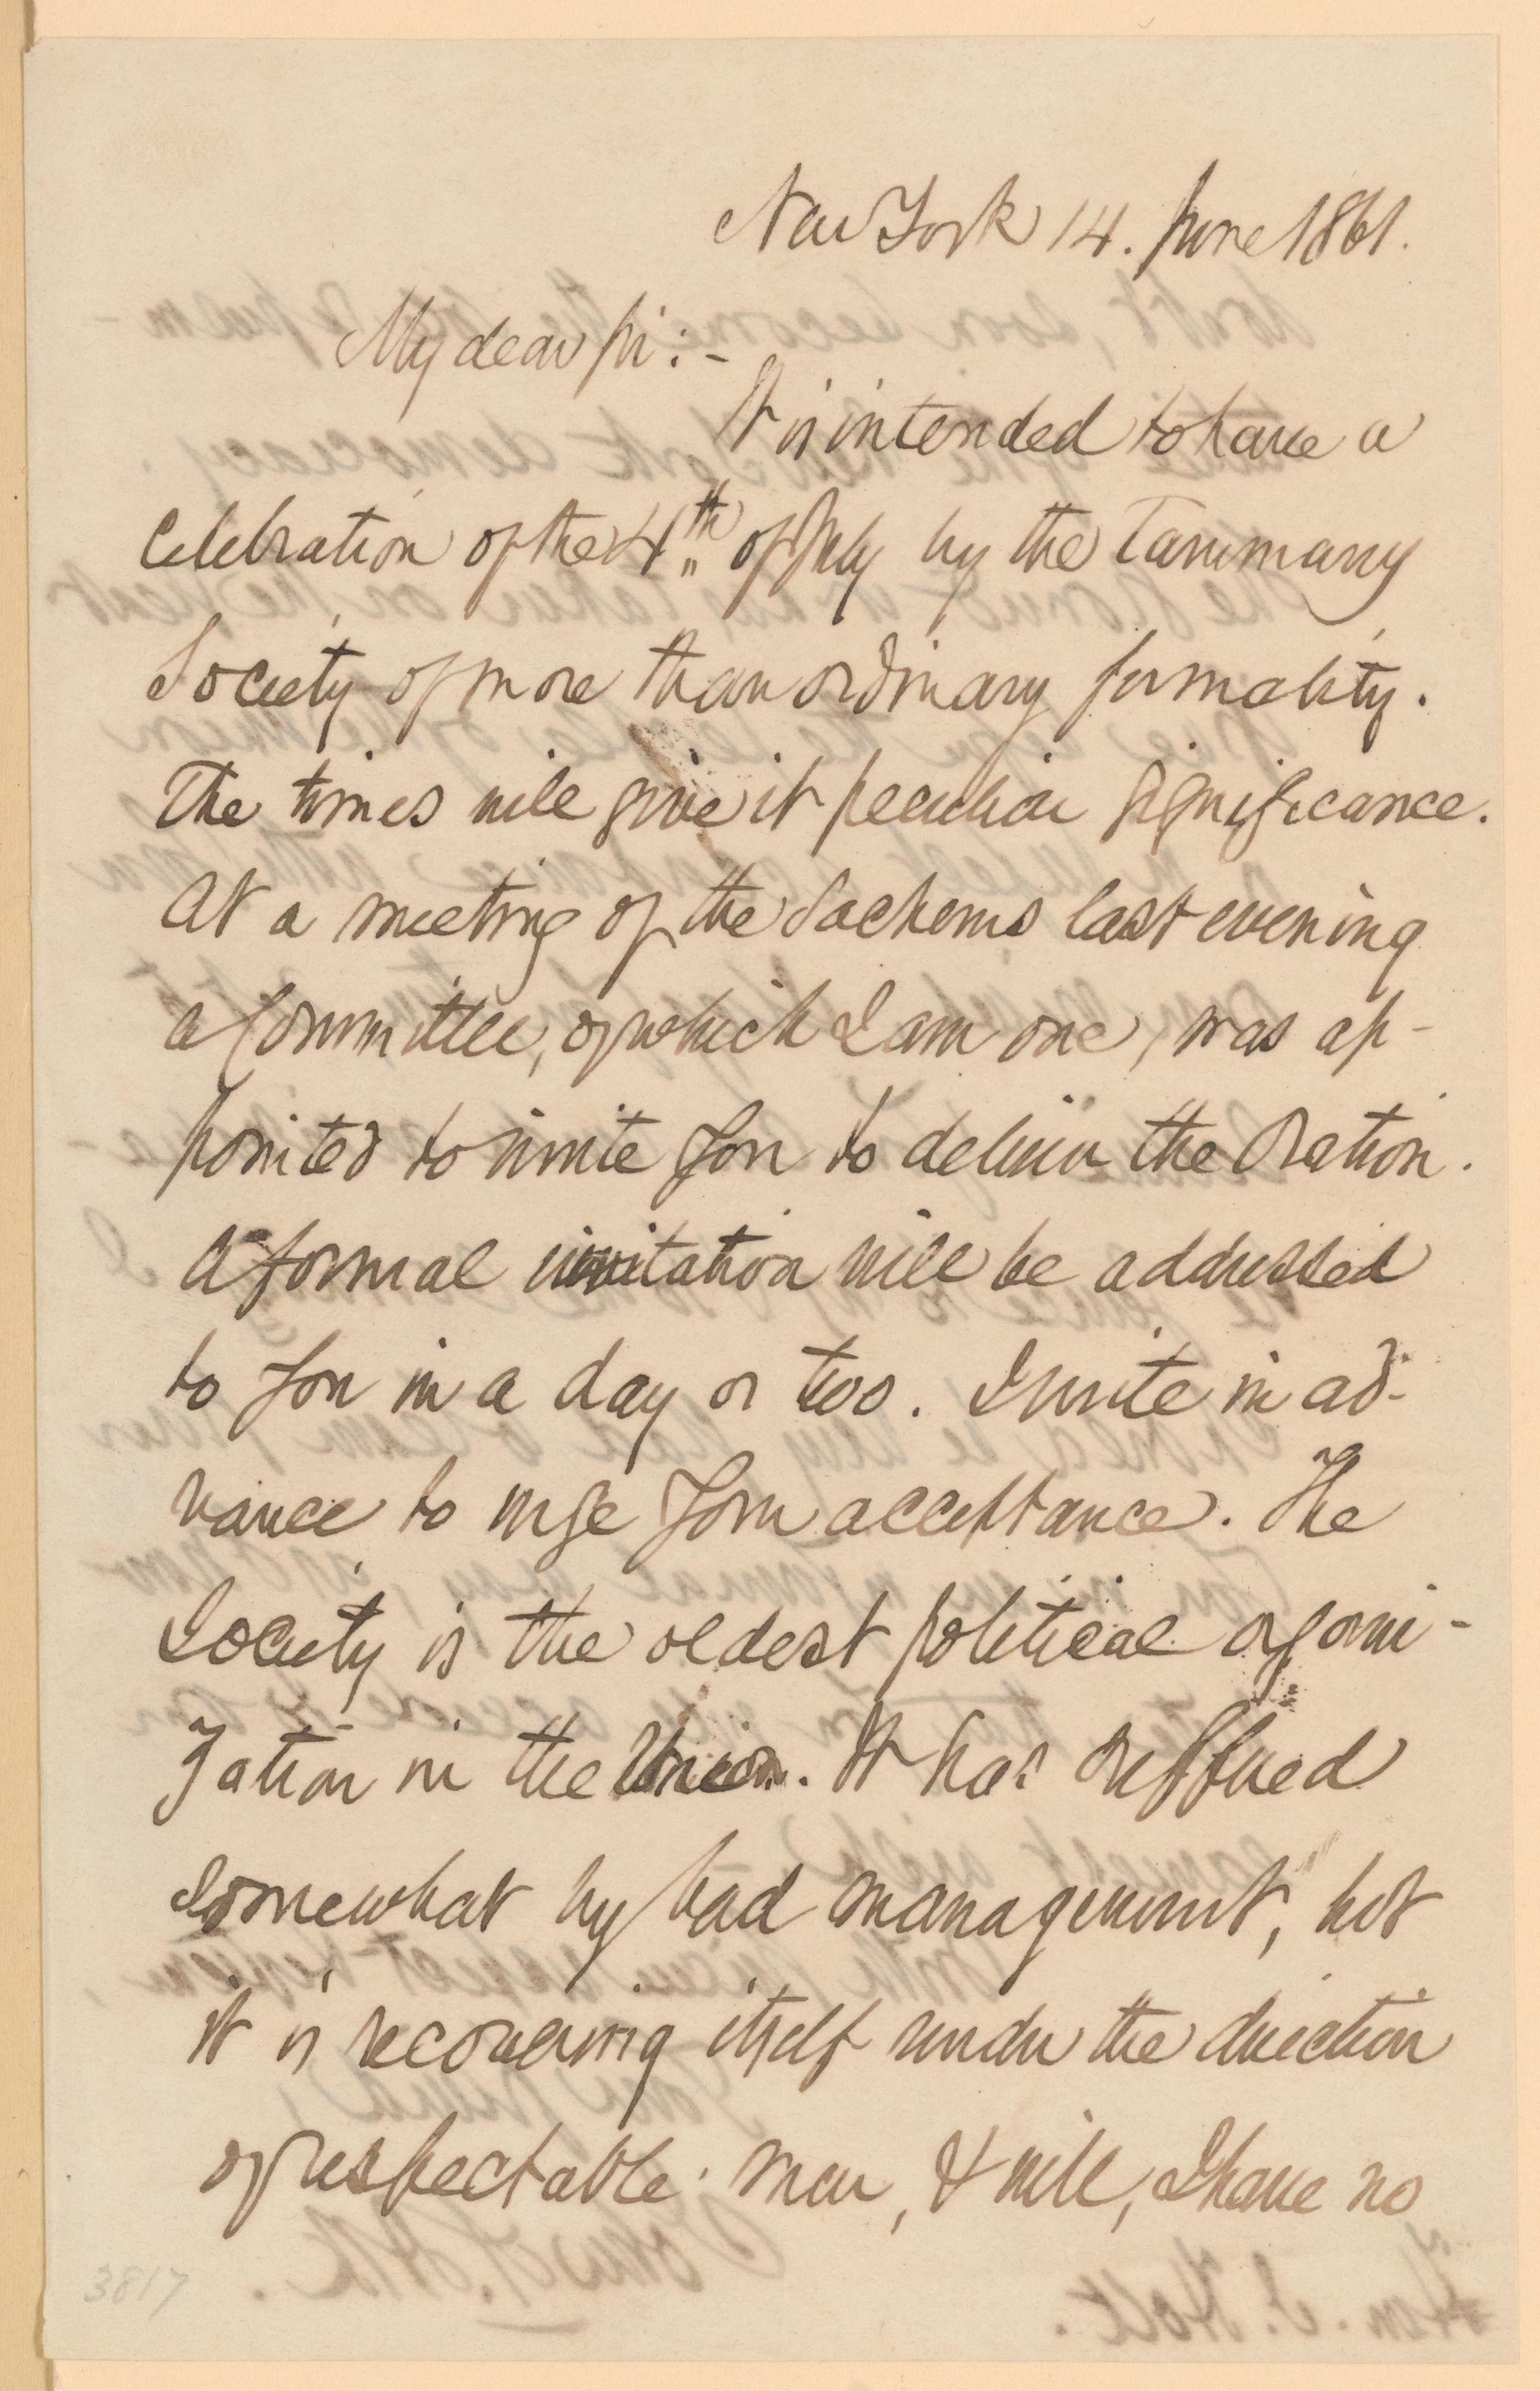 New York 14. June 1861.
My dear Sir:-
It is intended to have a
celebration of the 4th. of July by the Tammany
Society of more than ordinary formality.
The times will give it peculiar significance.
At a meeting of the Sachems last evening
a Committee, of which I am one, was ap-
pointed to invite you to deliver the Oration.
A formal invitation will be addressed
to you in a day or two. I write in ad-
vance to urge your acceptance. The
Society is the oldest political organi-
zation in the Union. It has suffered
somewhat by bad management, but
it is recovering itself under the direction
of respectable men, & will, I have no
3817